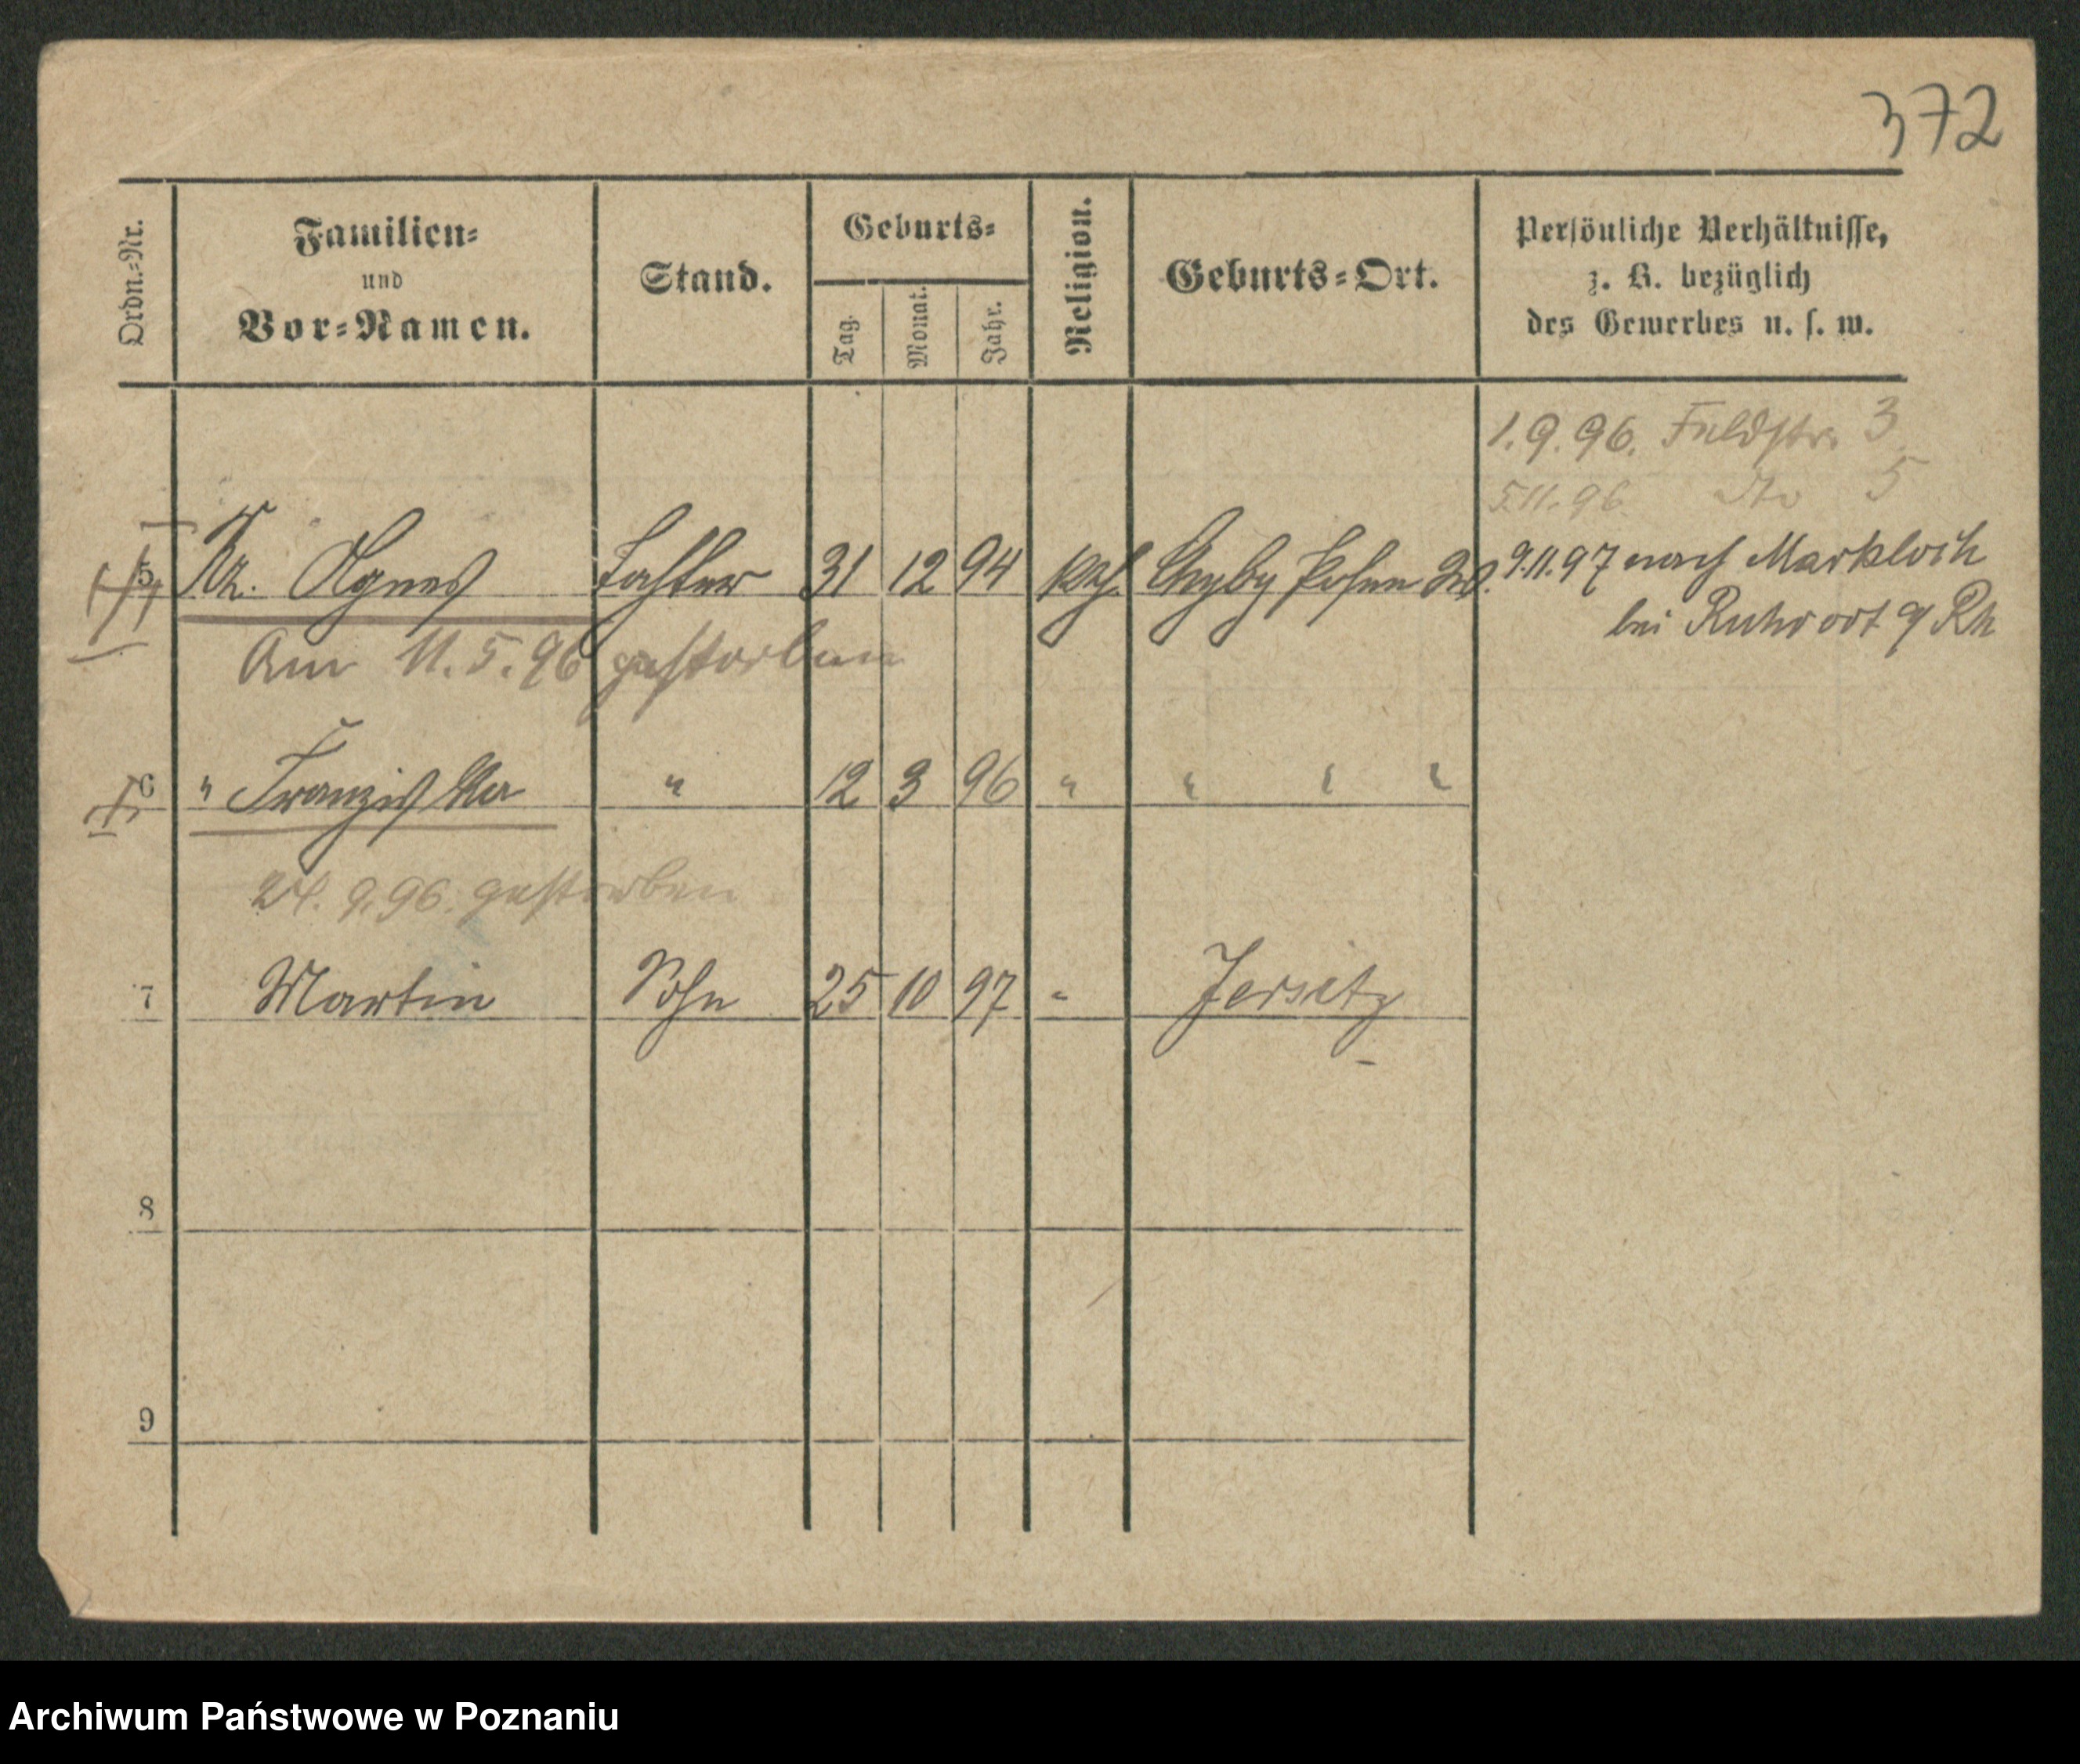 372
Ordn.-Nr.
Familien-
und
Vor-Namen.
Stand.
Geburts-
Tag.
Monat.
Jahr.
Religion.
Geburts-Ort.
Persönliche Verhältnisse,
z. B. bezüglich
des Gewerbes u. s. w.
1.9.96. Feldstr. 3
5.11.96. dto 5
5 Kr. Agnes Tochter 31 12 94 kth. Chyby Posen 9.11.97 nach Marxloh
bei Ruhrort a/Rh
Am 11.5.96 gestorben
6 " Franziska " 12 3 96 " " " "
24.9.96. gestorben
7 Martin Sohn 25 10 97 " Jersitz
8
9
Archiwum Państwowe w Poznaniu